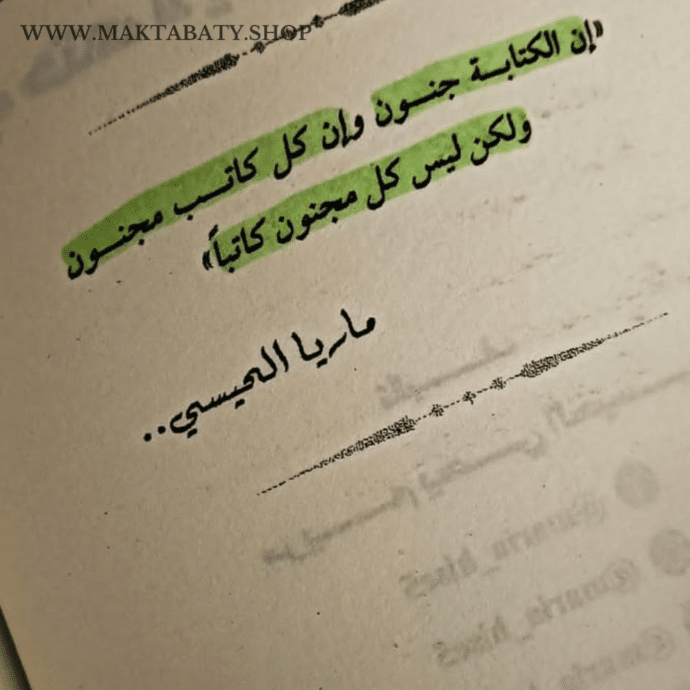 WWW.MAKTABATY.SHOP
«إن الكتابة جنون وإن كل كاتب مجنون
ولكن ليس كل مجنون كاتباً»
ماريا الحيسي..